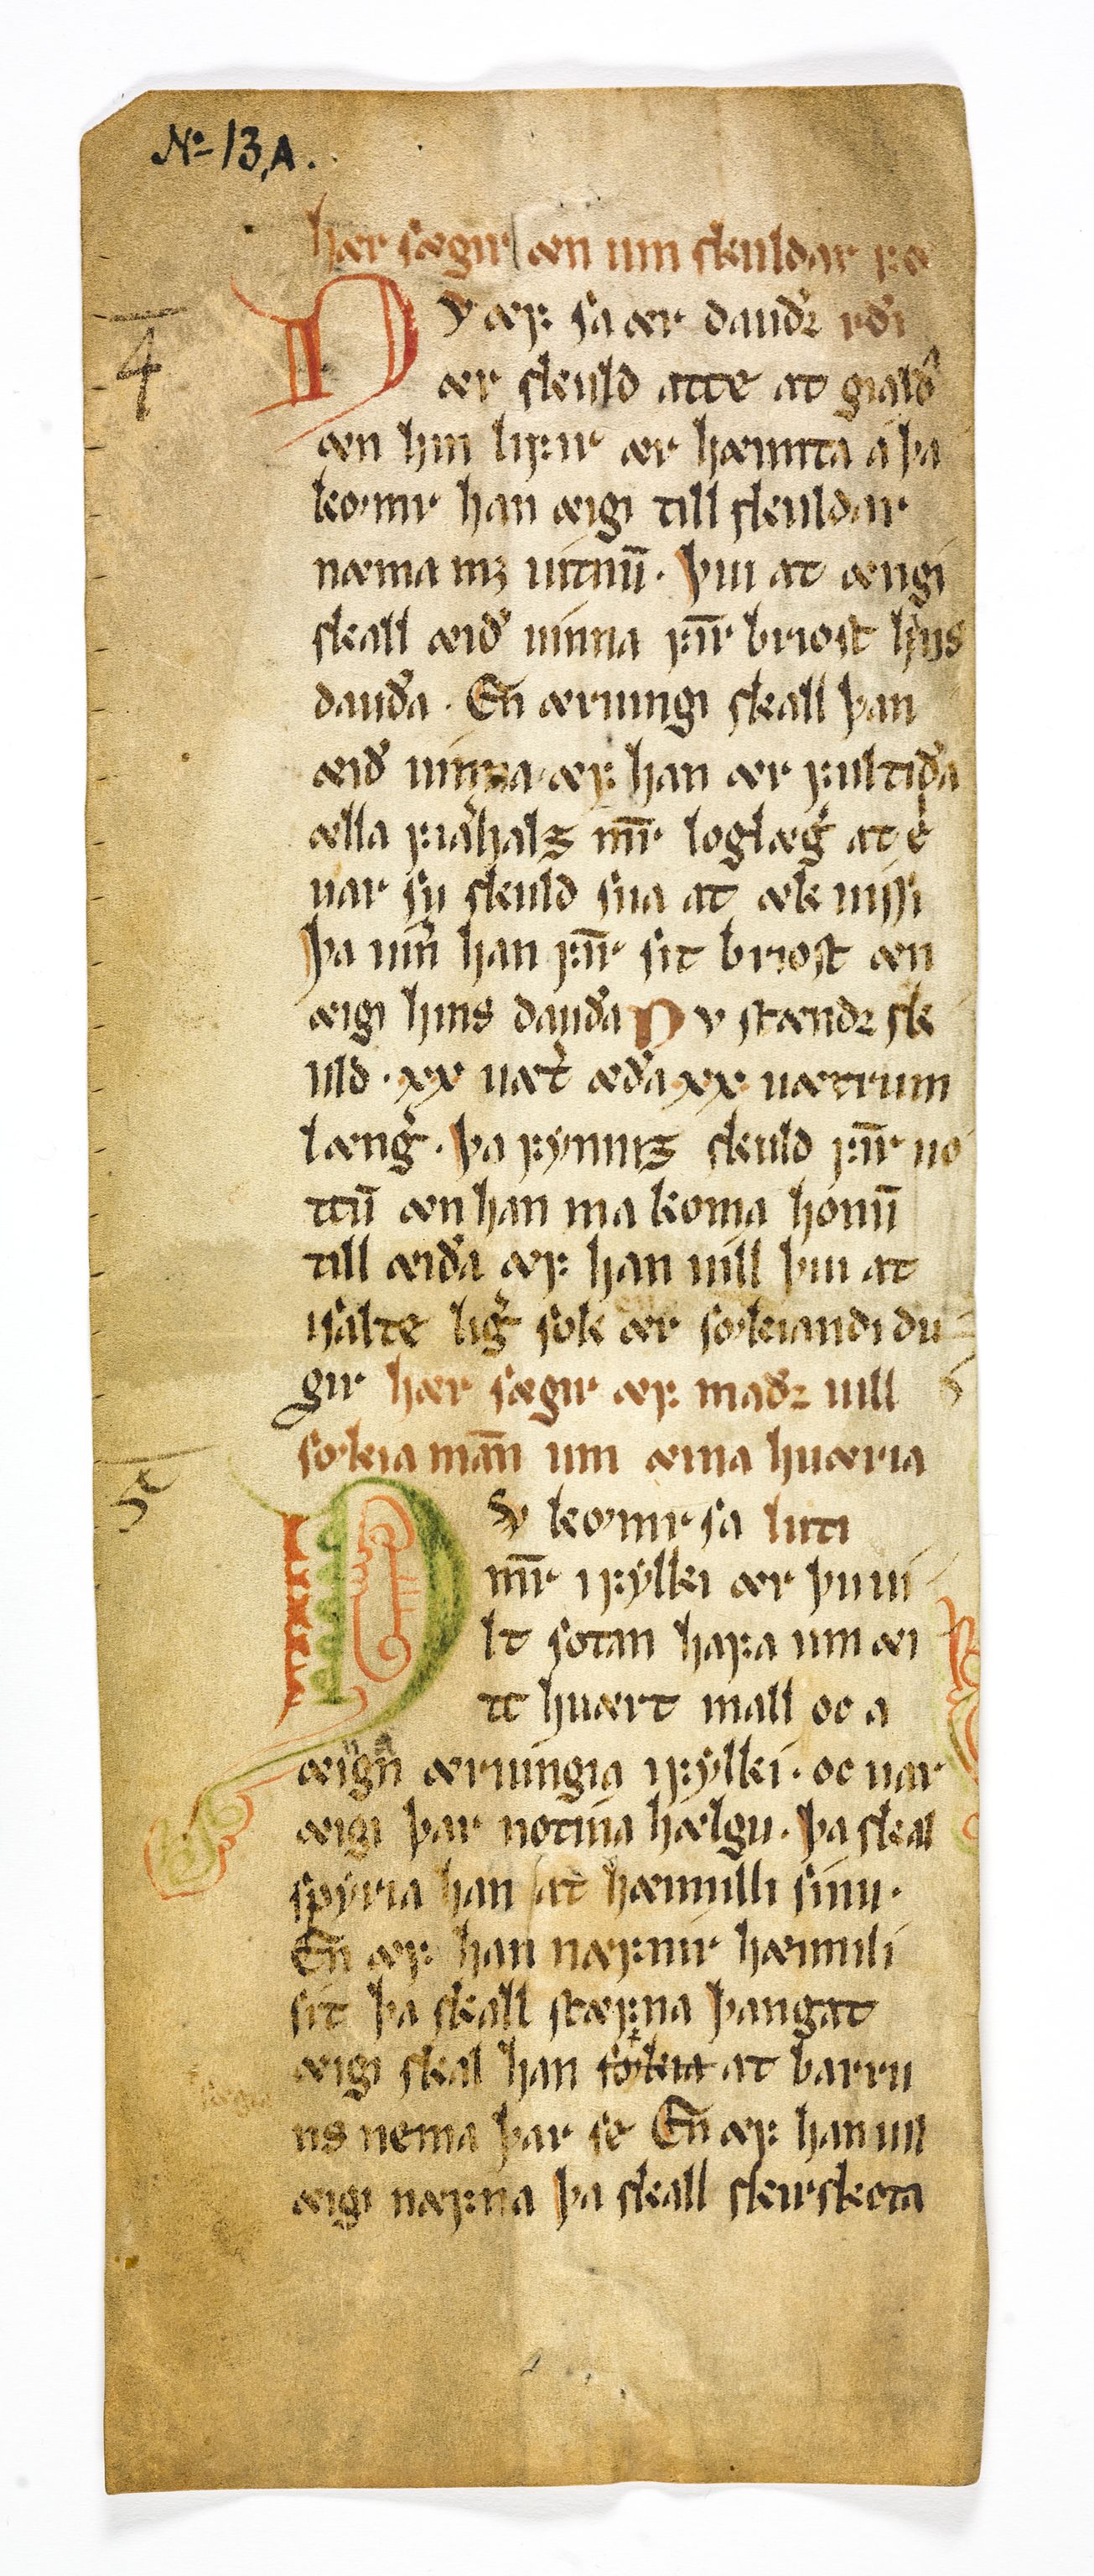 No 13,A.
hær sægir æn um skuldar fæ
4
Nv æf sa ær dauðꝛ rði
ær skuld atte at giald
æn hin lifir ær hæimta a þa
kømr han æigi till skuldar
næma mꝫ uitnū. þui at ængi
skall æið uinna firir briost hins
dauða. En̄ æruingi skall þan
æið uinna. æf han ær fultiða
ælla frialhalz
uar su skuld sua at æk uissi
þa uin̄ han firir sit briost æn
æigi hins dauða Nv stændꝛ sk
uld. xx uæt æða xx uætrum
læng. þa fyrniz skuld firir uo
ttū æn han ma koma honū
till æiða æf han uill þui at
isalte ligr sok ær søkiandi du
gir hær sægir æf maðꝛ uill
søkia man̄ um æina huæria
5
Nv kømr sa luti
m̄r i fylki ær þui ui
lt sottan hafa um æi
tt huært mall oc a
æigin æruingia i fylki. oc uar
æigi þar notuia hælgu. þa skal
spyria han at hæimilli sinu.
En̄ æf han næfnir hæimili
sit þa skall stæfna þangat
æigi skal han søkia at barru
ns nema þar se En̄ æf han uil
æigi næfna þa skall skirskota